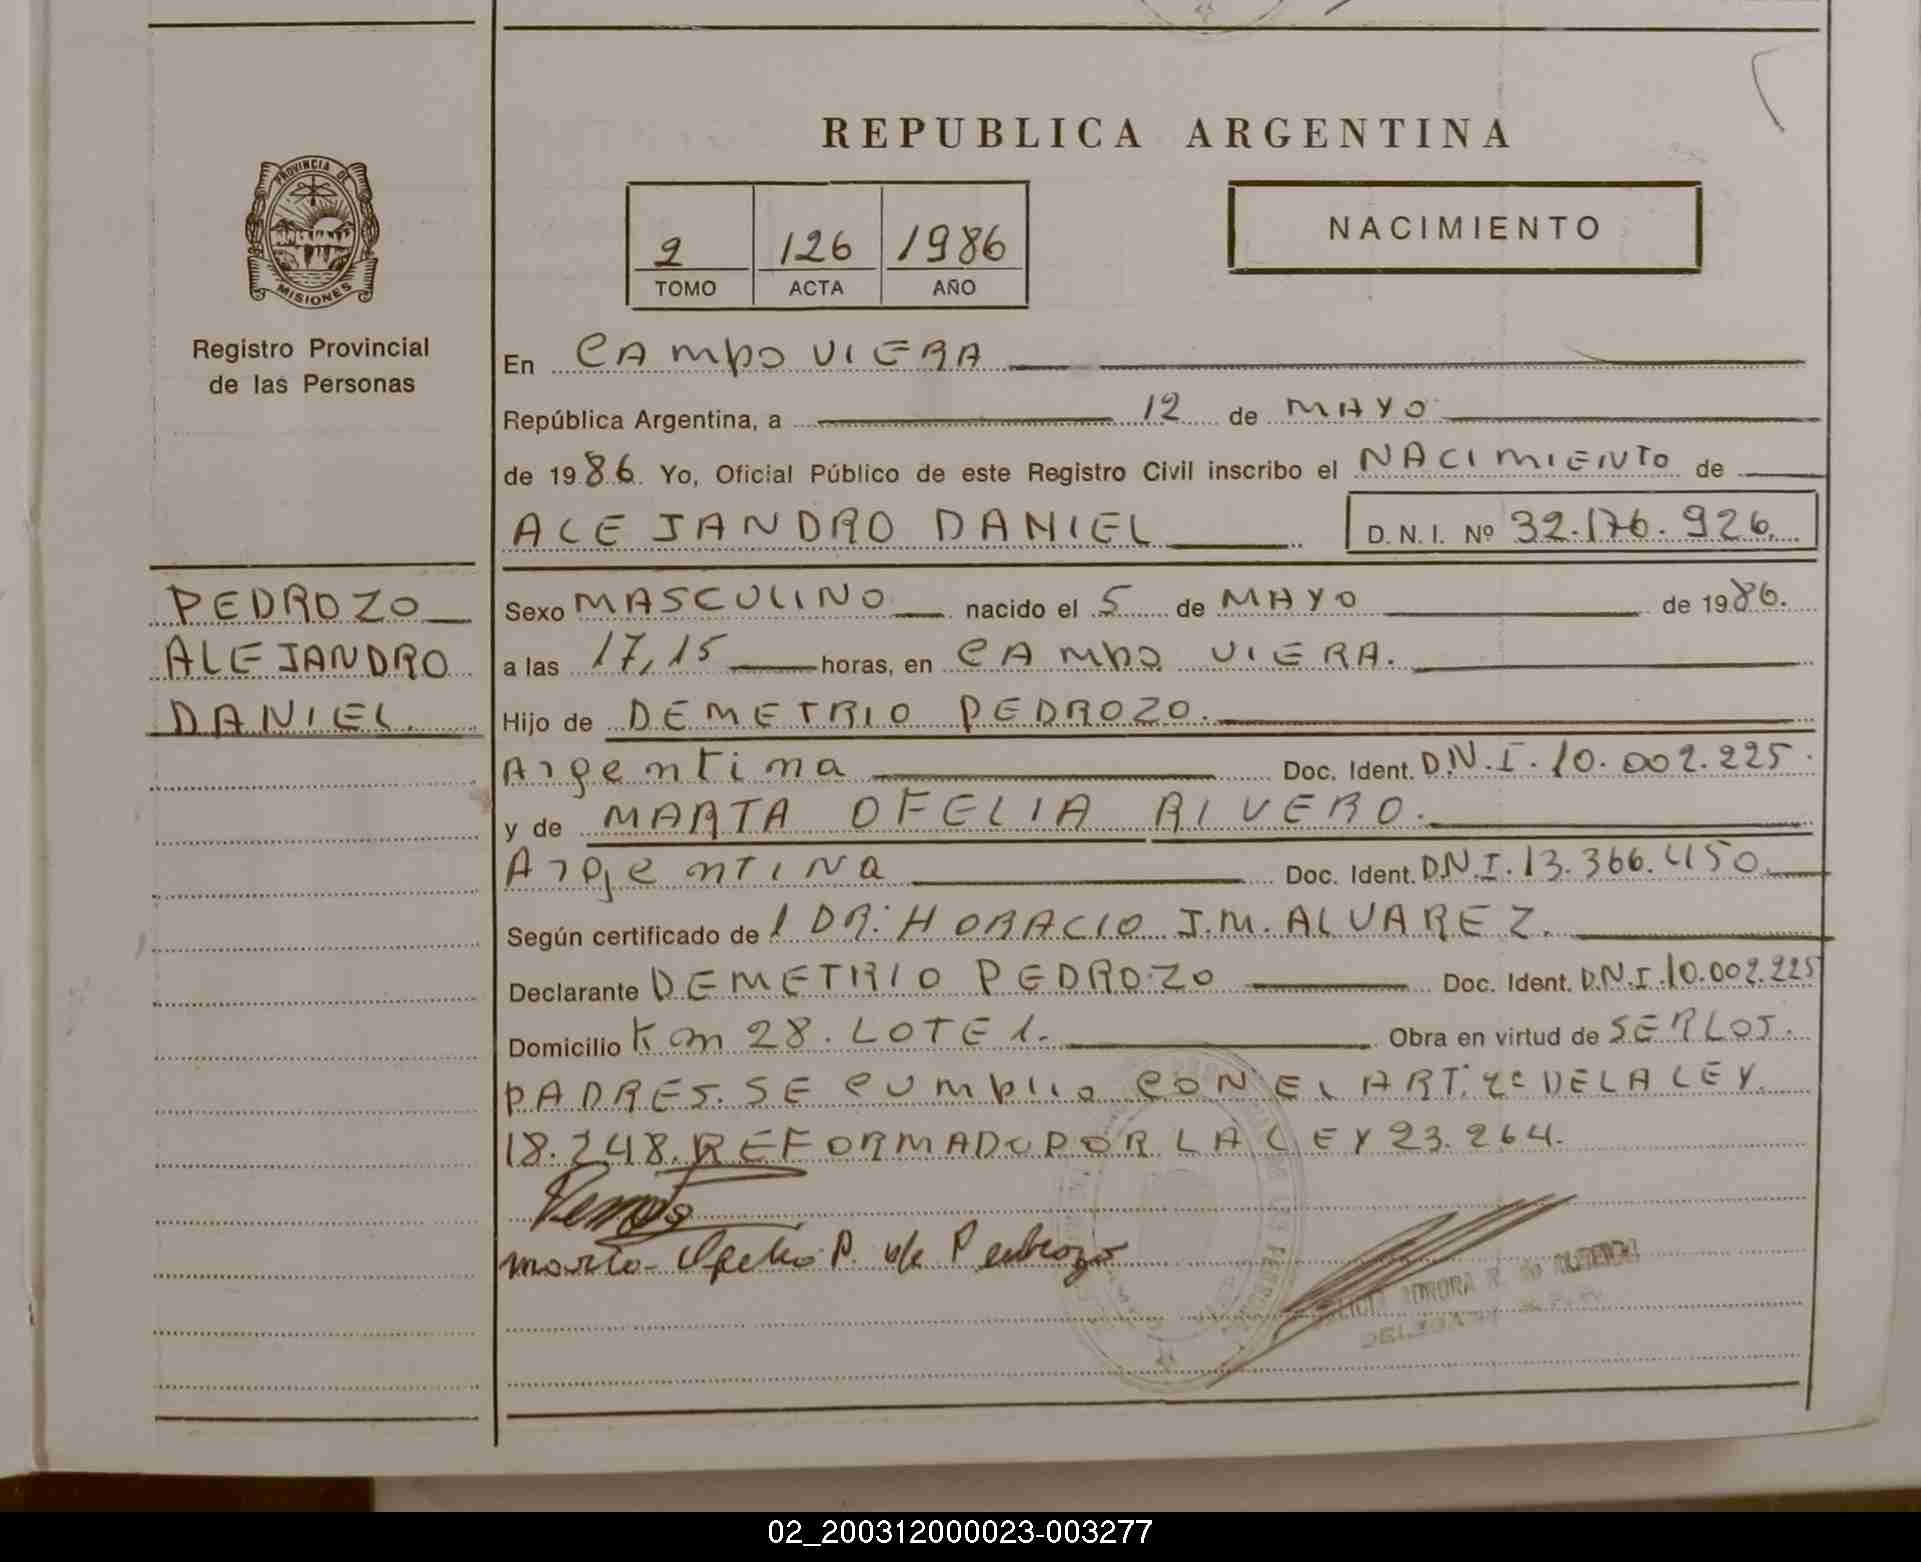 REPUBLICA ARGENTINA
PROVINCIA DE
MISIONES
Registro Provincial
de las Personas
2 126 1986
TOMO ACTA AÑO
NACIMIENTO
En CAmpo VIERA
República Argentina, a 12 de MAYO
de 1986. Yo, Oficial Público de este Registro Civil inscribo el NACIMIENTO de
ALEJANDRO DANIEL D. N. I. Nº 32.176.926.
PEDROZO
ALEJANDRO
DANIEL.
Sexo MASCULINO nacido el 5 de MAYO de 1986.
a las 17,15 horas, en CAmpo VIERA.
Hijo de DEMETRIO PEDROZO.
Argentina Doc. Ident. D.N.I. 10.002.225.
y de MARTA OFELIA RIVERO.
ArgentiNa Doc. Ident. D.N.I. 13.366.450.
Según certificado de l DR: HORACIO J.M. ALVAREZ.
Declarante DEMETRIO PEDROZO Doc. Ident. D.N.I. 10.002.225
Domicilio Km 28. LOTE 1. Obra en virtud de SER LOS.
PADRES. SE CUMPLIO CON EL ART. 2º DE LA LEY.
18.248. REFORMADO POR LA LEY 23.264.
Marta Ofelia R. de Pedrozo
02_200312000023-003277